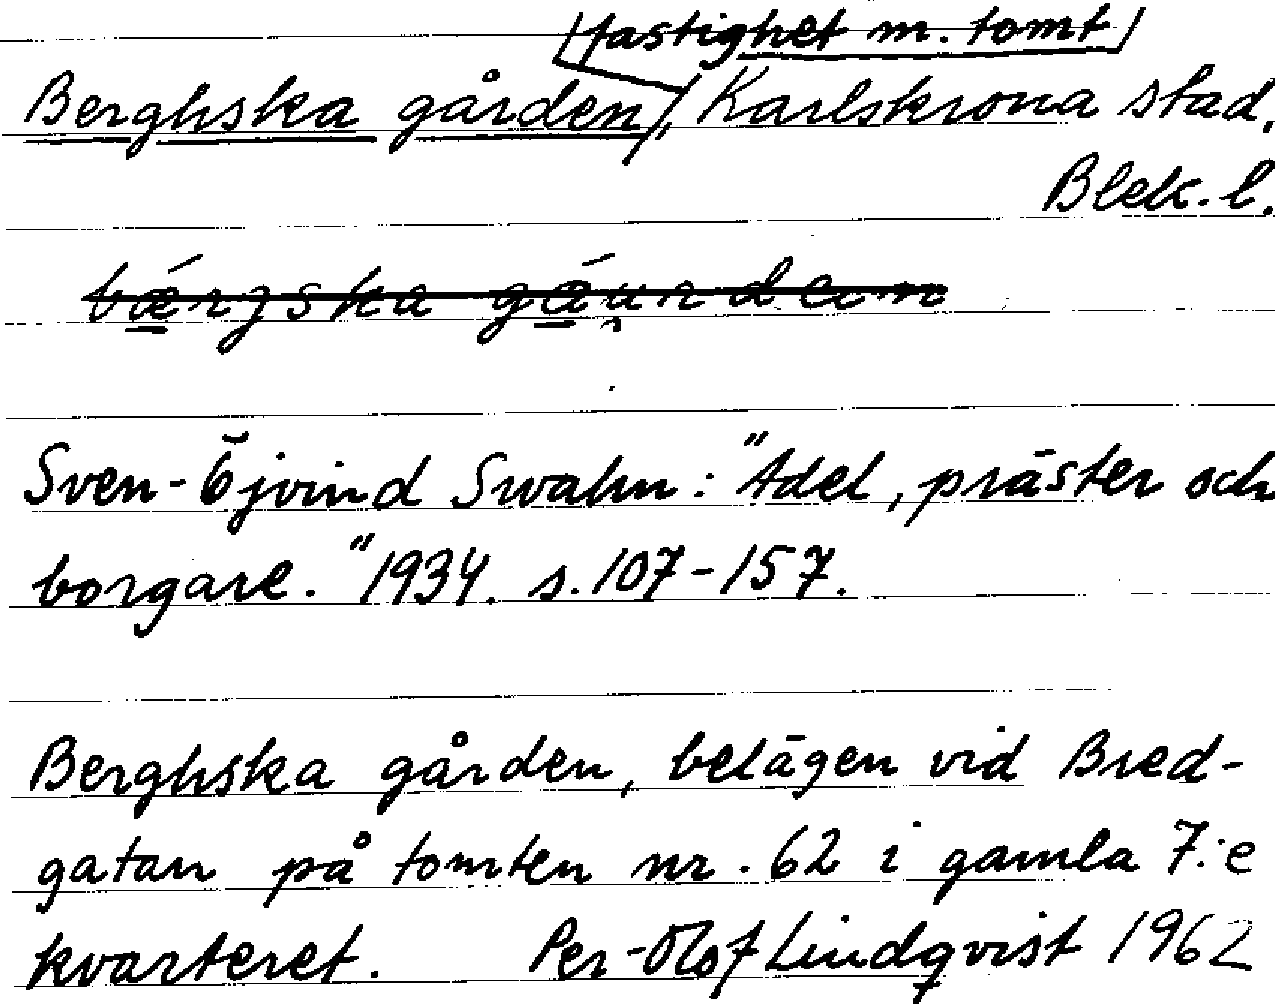 fastighet m. tomt
Berghska gården, Karlskrona stad,
Blek. l.
Sven-Öjvind Swahn: "Adel, präster och
borgare." 1934. s. 107-157.
Berghska gården, belägen vid Bred-
gatan på tomten nr. 62 i gamla 7:e
kvarteret. Per-Olof Lindqvist 1962